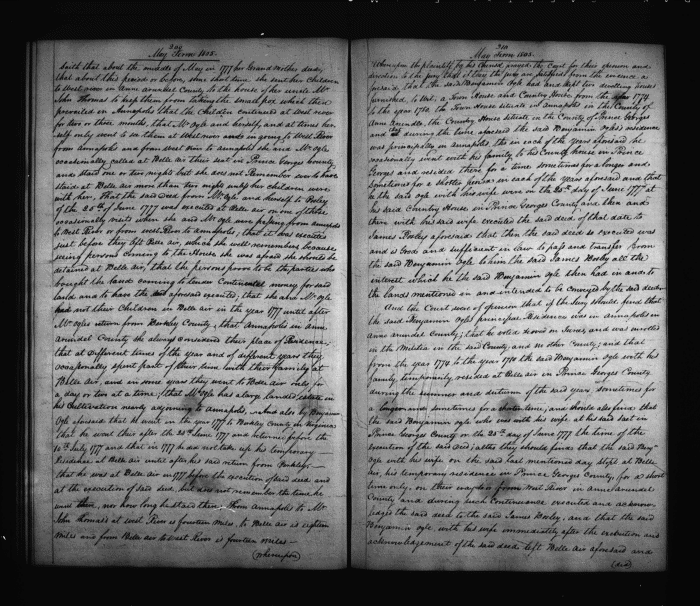 209
May Term 1803.
saith that about the middle of May in 1777 her Grand Mother died;
that about this period or before, some short time she sent her Children
to West river in Anne Arundel County to the house of her uncle Mr.
John Thomas to keep them from taking the small pox which then
prevailed in Annapolis that the Children continued at West river
for two or three months, that Mr. Ogle and herself, and at times her
self only went to see them at West river and in going to West River
from Annapolis and from West river to Annapolis she and Mr. Ogle
occasionally called at Belle air their seat in Prince Georges County
and staid one or two nights but she does not Remember ever to have
staid at Belle air more than two nights unless her children were
with her, That the said deed from Mr. Ogle and herself to Bosley
of the 25th of June 1777 was executed at Belle air on one of those
occasionally visits when she and Mr. Ogle were passing from Annapolis
to West River or from West River to Annapolis; that it was executed
just before they left Belle air, which she well remembers because
seeing persons coming to the House she was afraid she should be
retained at Belle air, that the persons proved to be the parties who
bought the land coming to tender Continental money for said
land and to have the deed aforesaid executed; that she and Mr. Ogle
had not their Children in Belle air in the year 1777 until after
Mr. Ogles return from Berkley County; that Annapolis in Anne
Arundel County she always considered their place of Residence;
that at different times of the year and of different years they
occasionally spent part of their time with their family at
Belle air, and in some years they went to Belle air only for
a day or two at a time; that Mr. Ogle has a large landed estate in
his Cultivation nearly adjoining to Annapolis, And also by Benjamin
Ogle aforesaid that he went in the year 1777 to Berkley County in Virginia;
that he went there after the 25th June 1777 and returned before the
10th July 1777 and that in 1777 he did not take up his temporary
Residence at Belle air until after his said return from Berkley;
that he was at Belle air in 1777 before the execution of said deed and
at the execution of said deed, but does not remember the time he
went there, nor how long he staid there, From Annapolis to Mr.
John Thomas's at West River is fourteen miles, to Belle air is eighteen
miles and from Belle air to West River is fourteen miles
(Whereupon)
210
May Term 1803.
Whereupon the plaintiff by his Counsel prayed the Court for their opinion and
direction to the jury that if they the jury are satisfied from the evidence aforesaid
that the said Benjamin Ogle had and kept two dwelling houses
furnished, to Wit, a Town House and Country House from the year 1774
to the year 1780 the Town House situate in Annapolis in the County of
Anne Arundel, the Country House situate in the County of Prince Georges
and that during the time aforesaid the said Benjamin Ogles residence
was principally in Annapolis tho in each of the years aforesaid he
occasionally went with his family to the Country house in Prince
Georges and resided there for a time sometimes for a longer and
sometimes for a shorter period in each of the years aforesaid and that
the said Ogle with his wife were on the 25th day of June 1777 at
his said Country House in Prince Georges County and then and
there with his said wife executed the said deed of that date to
James Bosley aforesaid that then the said deed so executed was
and is good and sufficient in law to pass and transfer from
the said Benjamin Ogle to him the said James Bosley all the
interest which he the said Benjamin Ogle then had in and to
the lands mentioned in and intended to be conveyed by the said deed
And the Court were of opinion that if the Jury should find that
the said Benjamin Ogles principal Residence was in Annapolis in
Anne Arundel County; that he voted served on Juries, and was enrolled
in the Militia in the said County, and no other County; and that
from the year 1774 to the year 1780 the said Benjamin Ogle with his
family, temporarily resided at Belle air in Prince Georges County
during the summer and autumn of the said year, sometimes for
a longer and sometimes for a shorter time; and should also find that
the said Benjamin Ogle was with his wife at his said seat in
Prince Georges County on the 25th day of June 1777 the time of the
execution of the said deed; altho they should find that the said Benj.
Ogle with his wife on the said last mentioned day slept at Belle
air, his temporary residence in Prince Georges County, for a short
time only, on their way to or from West River in Anne Arundel
County and during such Continuance executed and acknow
ledged the said deed to the said James Bosley, and that the said
Benjamin Ogle with his wife immediately after the execution and
acknowledgement of the said deed left Belle air aforesaid and
(did)